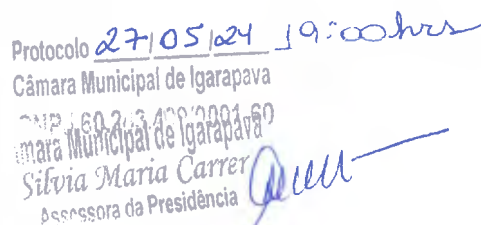 Protocolo 27/05/24 19:00hrs
Câmara Municipal de Igarapava
mara Municipal de Igarapava
Silvia Maria Carrer
Assessora da Presidência